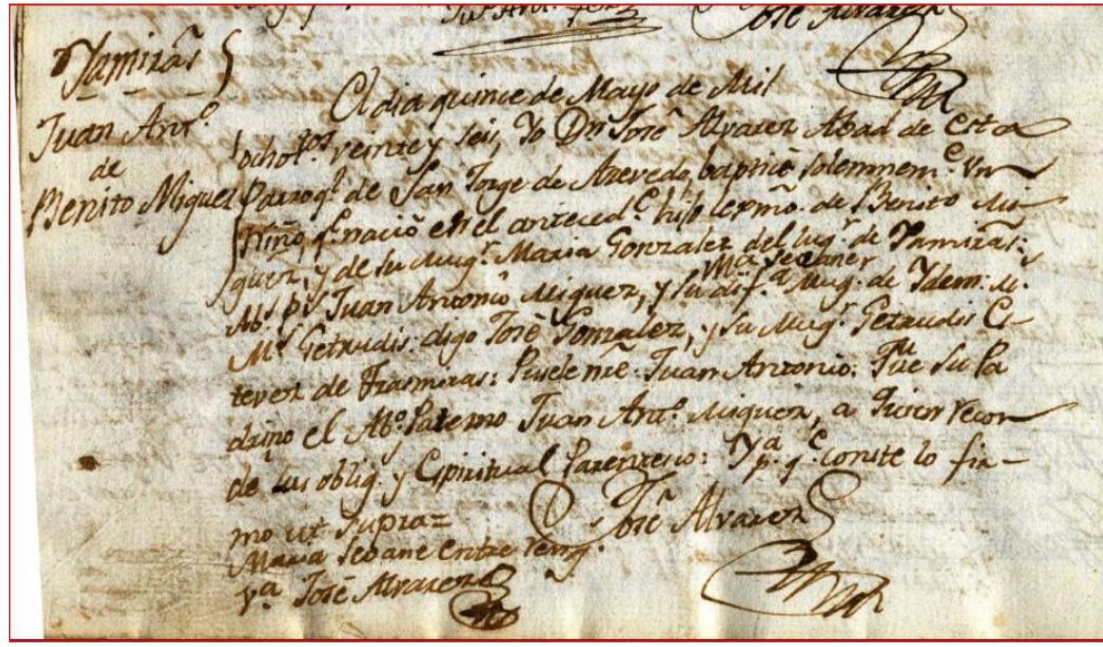 José Alvarez
Yamirãs
Juan Antº
de
Benito Miguel
El dia quince de Mayo de Mil
ochotos veinte y seis, Yo Dn José Alvarez Abad de esta
Parroql de San Jorge de Azevedo, baptizé solemneme Un
Niño qe nació en el antecede hijo lexmo de Benito Mi-
guez, y de su Mugr Maria Gonzalez del lugr de Yamirãs:
Ms ps Juan Antonio Miguez, y su difa Mugr de Ydem: M.
Ma Seoane
Ms Getrudis digo José Gonzalez, y su Mugr Getrudis Es-
tevez de Trasmiras: Pusele nme Juan Antonio: Fue su Pa
drino el Abº Paterno Juan Antº Miguez, a quien recor
de sus oblig. y Espiritual Parentesco: Y pa qe conste lo fir-
mo ut supra=
José Alvarez
Maria Seoane Entre reng.
va José Alvarez